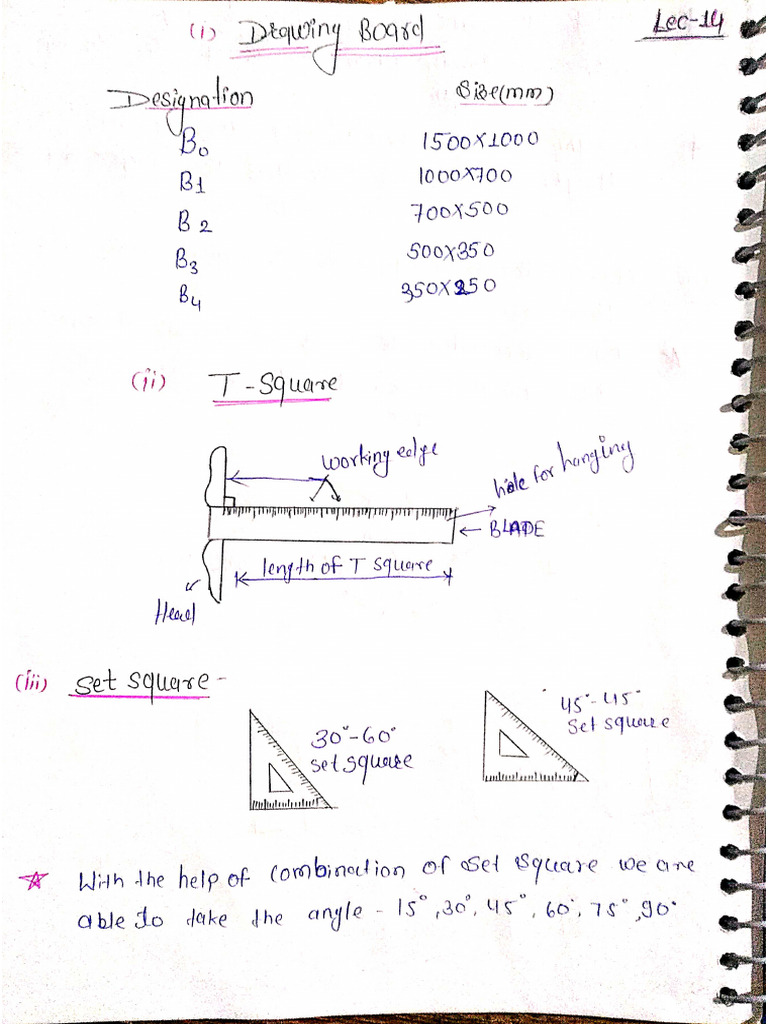 Lec-14
(i) Drawing Board
Designation Size(mm)
B0 1500X1000
B1 1000X700
B2 700X500
B3 500X350
B4 350X250
(ii) T-Square
working edge
hole for hanging
← BLADE
length of T square
Head
(iii) Set square -
30°-60°
set square
45°-45°
set square
☆ With the help of combination of set square we are
able to take the angle - 15°, 30°, 45°, 60°, 75°, 90°